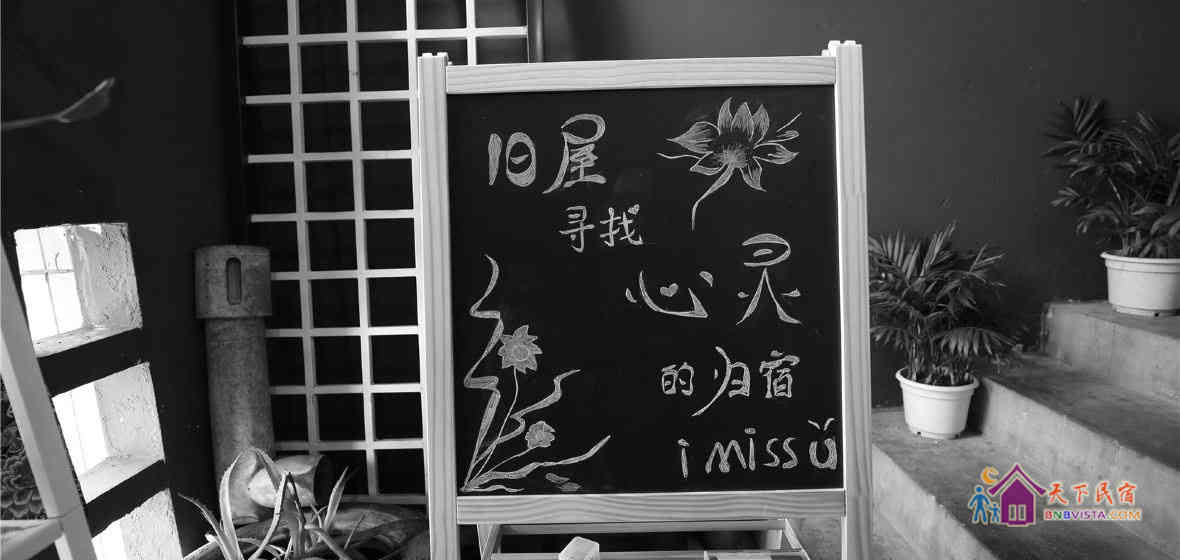 旧屋
寻找
心灵
的归宿
i miss ǔ
天下民宿
BNBVISTA.COM